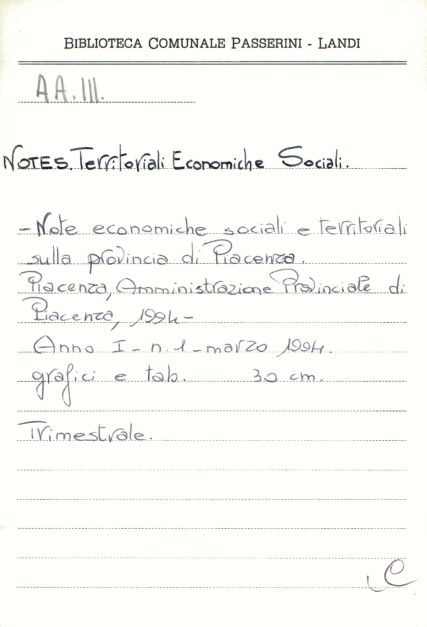 BIBLIOTECA COMUNALE PASSERINI - LANDI
AA.III.
NOTES. Territoriali Economiche Sociali.
- Note economiche sociali e territoriali
sulla provincia di Piacenza.
Piacenza, Amministrazione Provinciale di
Piacenza, 1994-
Anno I - n. 1 - marzo 1994.
grafici e tab. 30 cm.
Trimestrale.
C